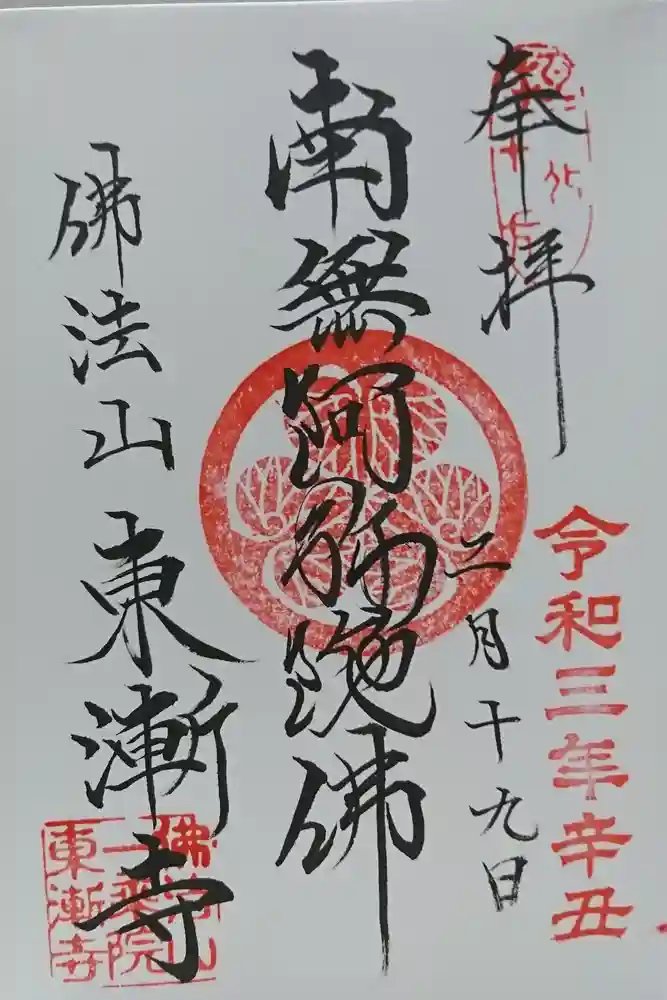 奉拝
令和三年辛丑
二月十九日
南無阿弥陀佛
佛法山東漸寺
佛法山
一乗院
東漸寺